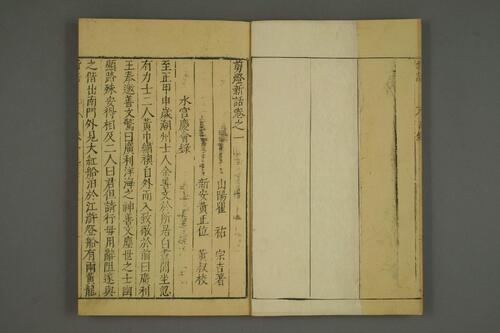 剪燈新話卷之一
山陽瞿　祐　宗吉著
新安黃正位　黃叔校
水宮慶會錄
至正甲申歲潮州士人余善文於所居白晝閒坐忽
有力士二人黃巾繡襖自外而入致敬於前曰廣利
王奉邀善文驚曰廣利洋海之神善文塵世之士幽
顯路殊安得相及二人曰君但請行毋用辭阻遂與
之偕出南門外見大紅船泊於江滸登船有兩黃龍